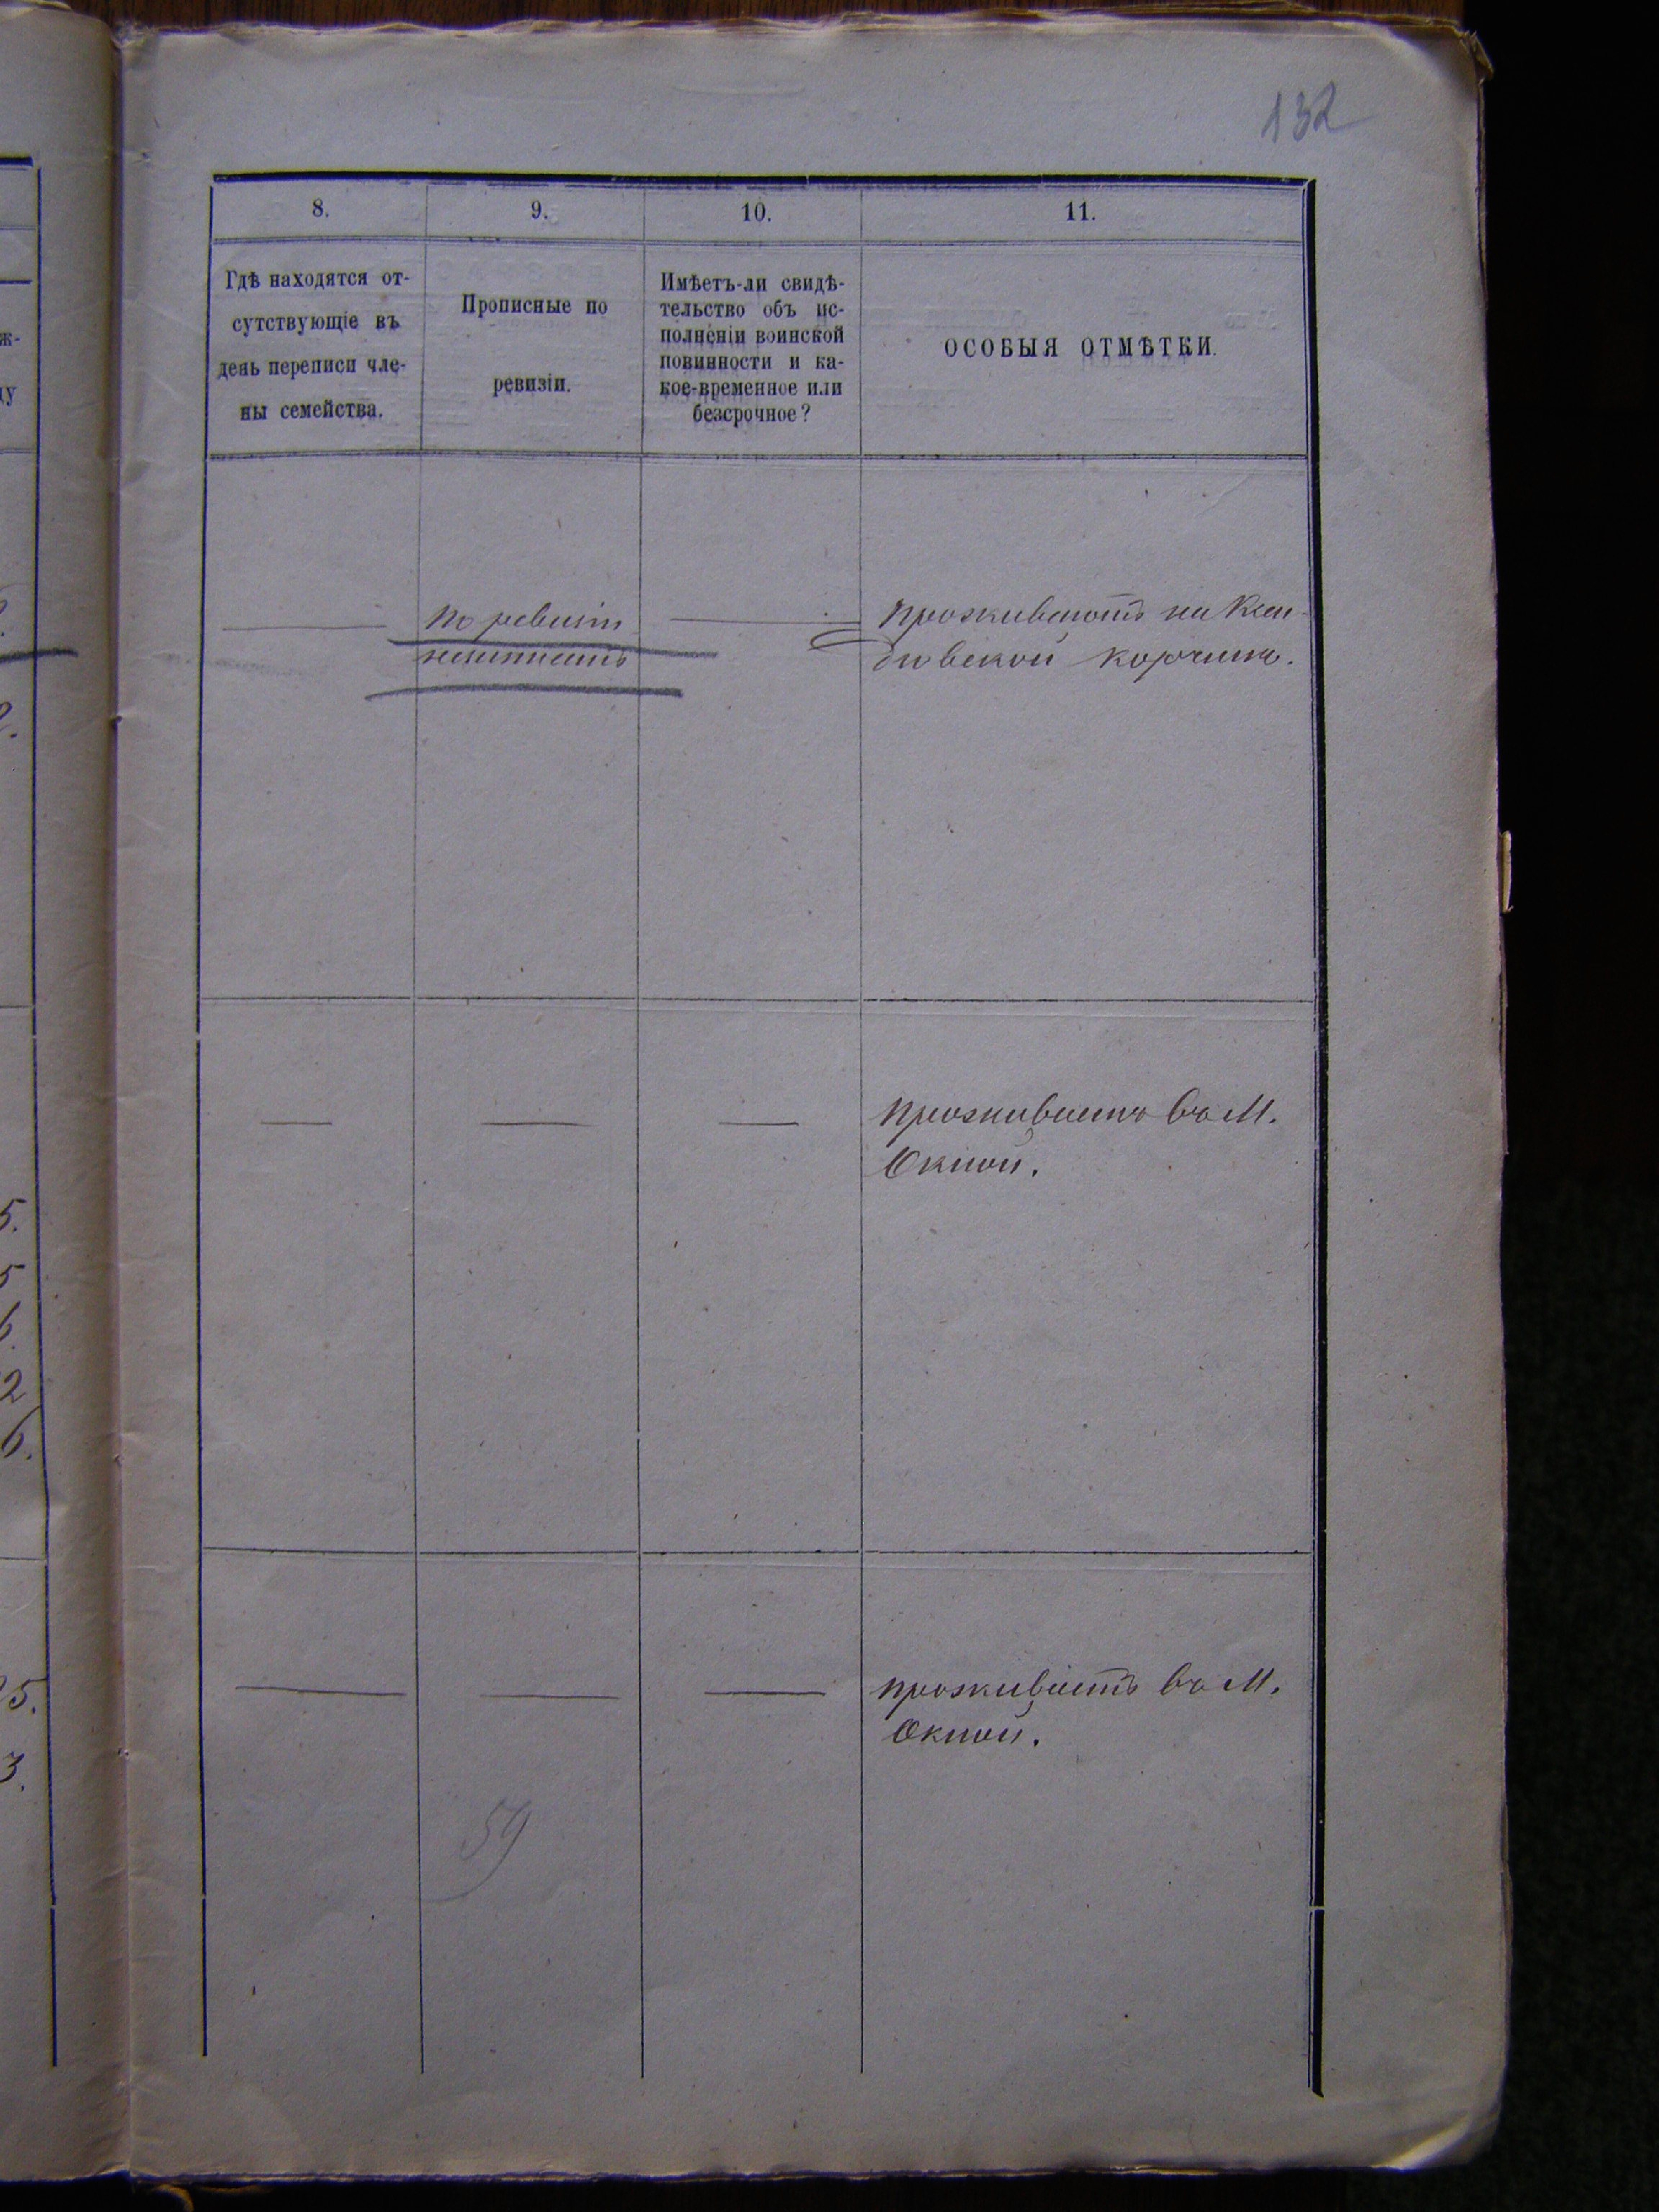 132
8.
9.
10.
11.
Гдѣ находятся от-
сутствующіе въ
день переписи чле-
ны семейства.
Прописные по
ревизіи.
Имѣетъ-ли свидѣ-
тельство объ ис-
полненіи воинской
повинности и ка-
кое-временное или
безсрочное?
ОСОБЫЯ ОТМѢТКИ.
по ревизіи
проживаютъ на
корчмѣ.
проживаетъ въ М.
Окнои.
проживаетъ въ М.
Окнои.
59
ж-
ду
2.
5.
5
6.
2
6.
25.
3.